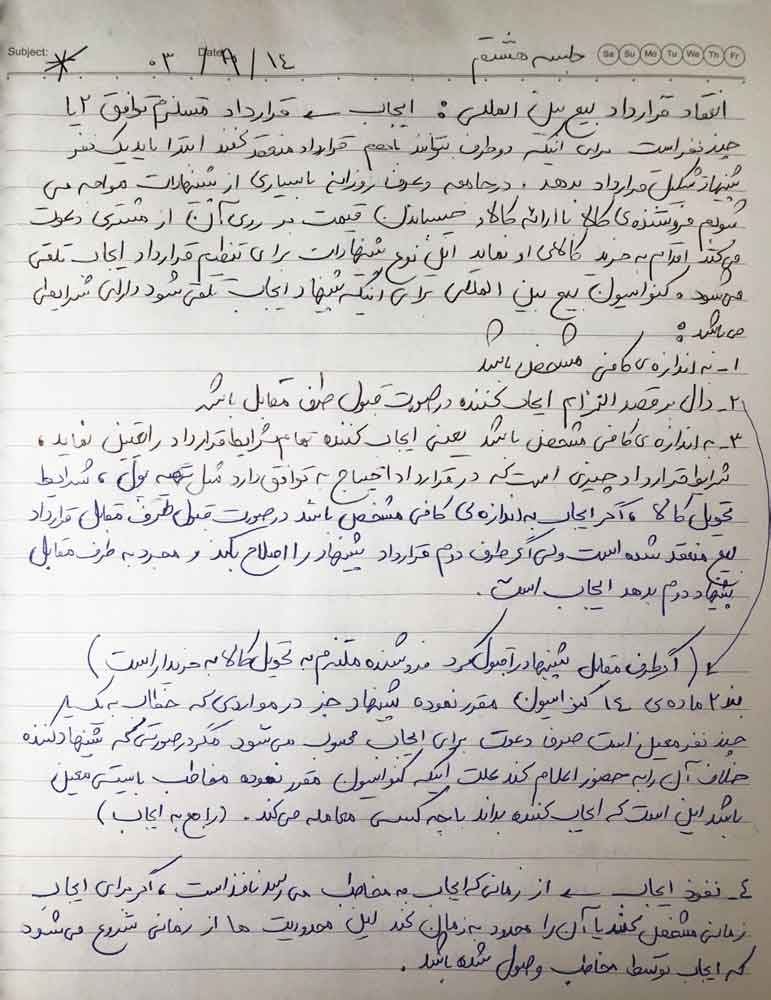 Subject: Date: ۰۳ / ۹ / ۱٤ جلسه هشتم Sa Su Mo Tu We Th Fr
انعقاد قرارداد بیع بین المللی : ایجاب ← قرارداد مستلزم توافق ۲ یا
چند نفر است برای اینکه دو طرف بتوانند باهم قرارداد منعقد کنند ابتدا باید یک نفر
پیشنهاد تشکیل قرارداد بدهد . در جامعه و عرف روزانه با بسیاری از پیشنهادات مواجه می
شویم فروشنده ی کالا با ارائه کالا و چسباندن قیمت بر روی آن از مشتری دعوت
می کند اقدام به خرید کالای او نماید این نوع پیشنهادات برای تنظیم قرارداد ایجاب تلقی
می شود . کنوانسیون بیع بین المللی برای اینکه پیشنهاد ایجاب تلقی شود دارای شرایطی
می باشد :
۱- به اندازه ی کافی مشخص باشد
۲- دال بر قصد التزام ایجاب کننده در صورت قبول طرف مقابل باشد
۳- به اندازه ی کافی مشخص باشد یعنی ایجاب کننده تمام شرایط قرارداد را تعیین نماید ،
شرایط قرارداد چیزی است که در قرارداد احتیاج به توافق دارد مثل تهیه پول ، شرایط
تحویل کالا ، اگر ایجاب به اندازه ی کافی مشخص باشد در صورت قبول طرف مقابل قرارداد
بیع منعقد شده است ولی اگر طرف دوم قرارداد پیشنهاد را اصلاح بکند و مجدد به طرف مقابل
پیشنهاد دوم بدهد ایجاب است .
( اگر طرف مقابل پیشنهاد را قبول کرد فروشنده ملتزم به تحویل کالا به خریدار است )
بند ۲ ماده ی ۱٤ کنوانسیون مقرر نموده پیشنهاد جز در مواردی که خطاب به یک یا
چند نفر معین است صرف دعوت برای ایجاب محسوب می شود مگر در صورتی که پیشنهاد کننده
خلاف آن را به حضور اعلام کند علت اینکه کنوانسیون مقرر نموده مخاطب بایستی معین
باشد این است که ایجاب کننده بداند با چه کسی معامله می کند . ( راجع به ایجاب )
٤- نفوذ ایجاب ← از زمانی که ایجاب به مخاطب می رسد نافذ است ، اگر برای ایجاب
زمانی مشخص کنند یا آن را محدود به زمان کند این محدودیت ها از زمانی شروع می شود
که ایجاب توسط مخاطب وصول شده باشد .